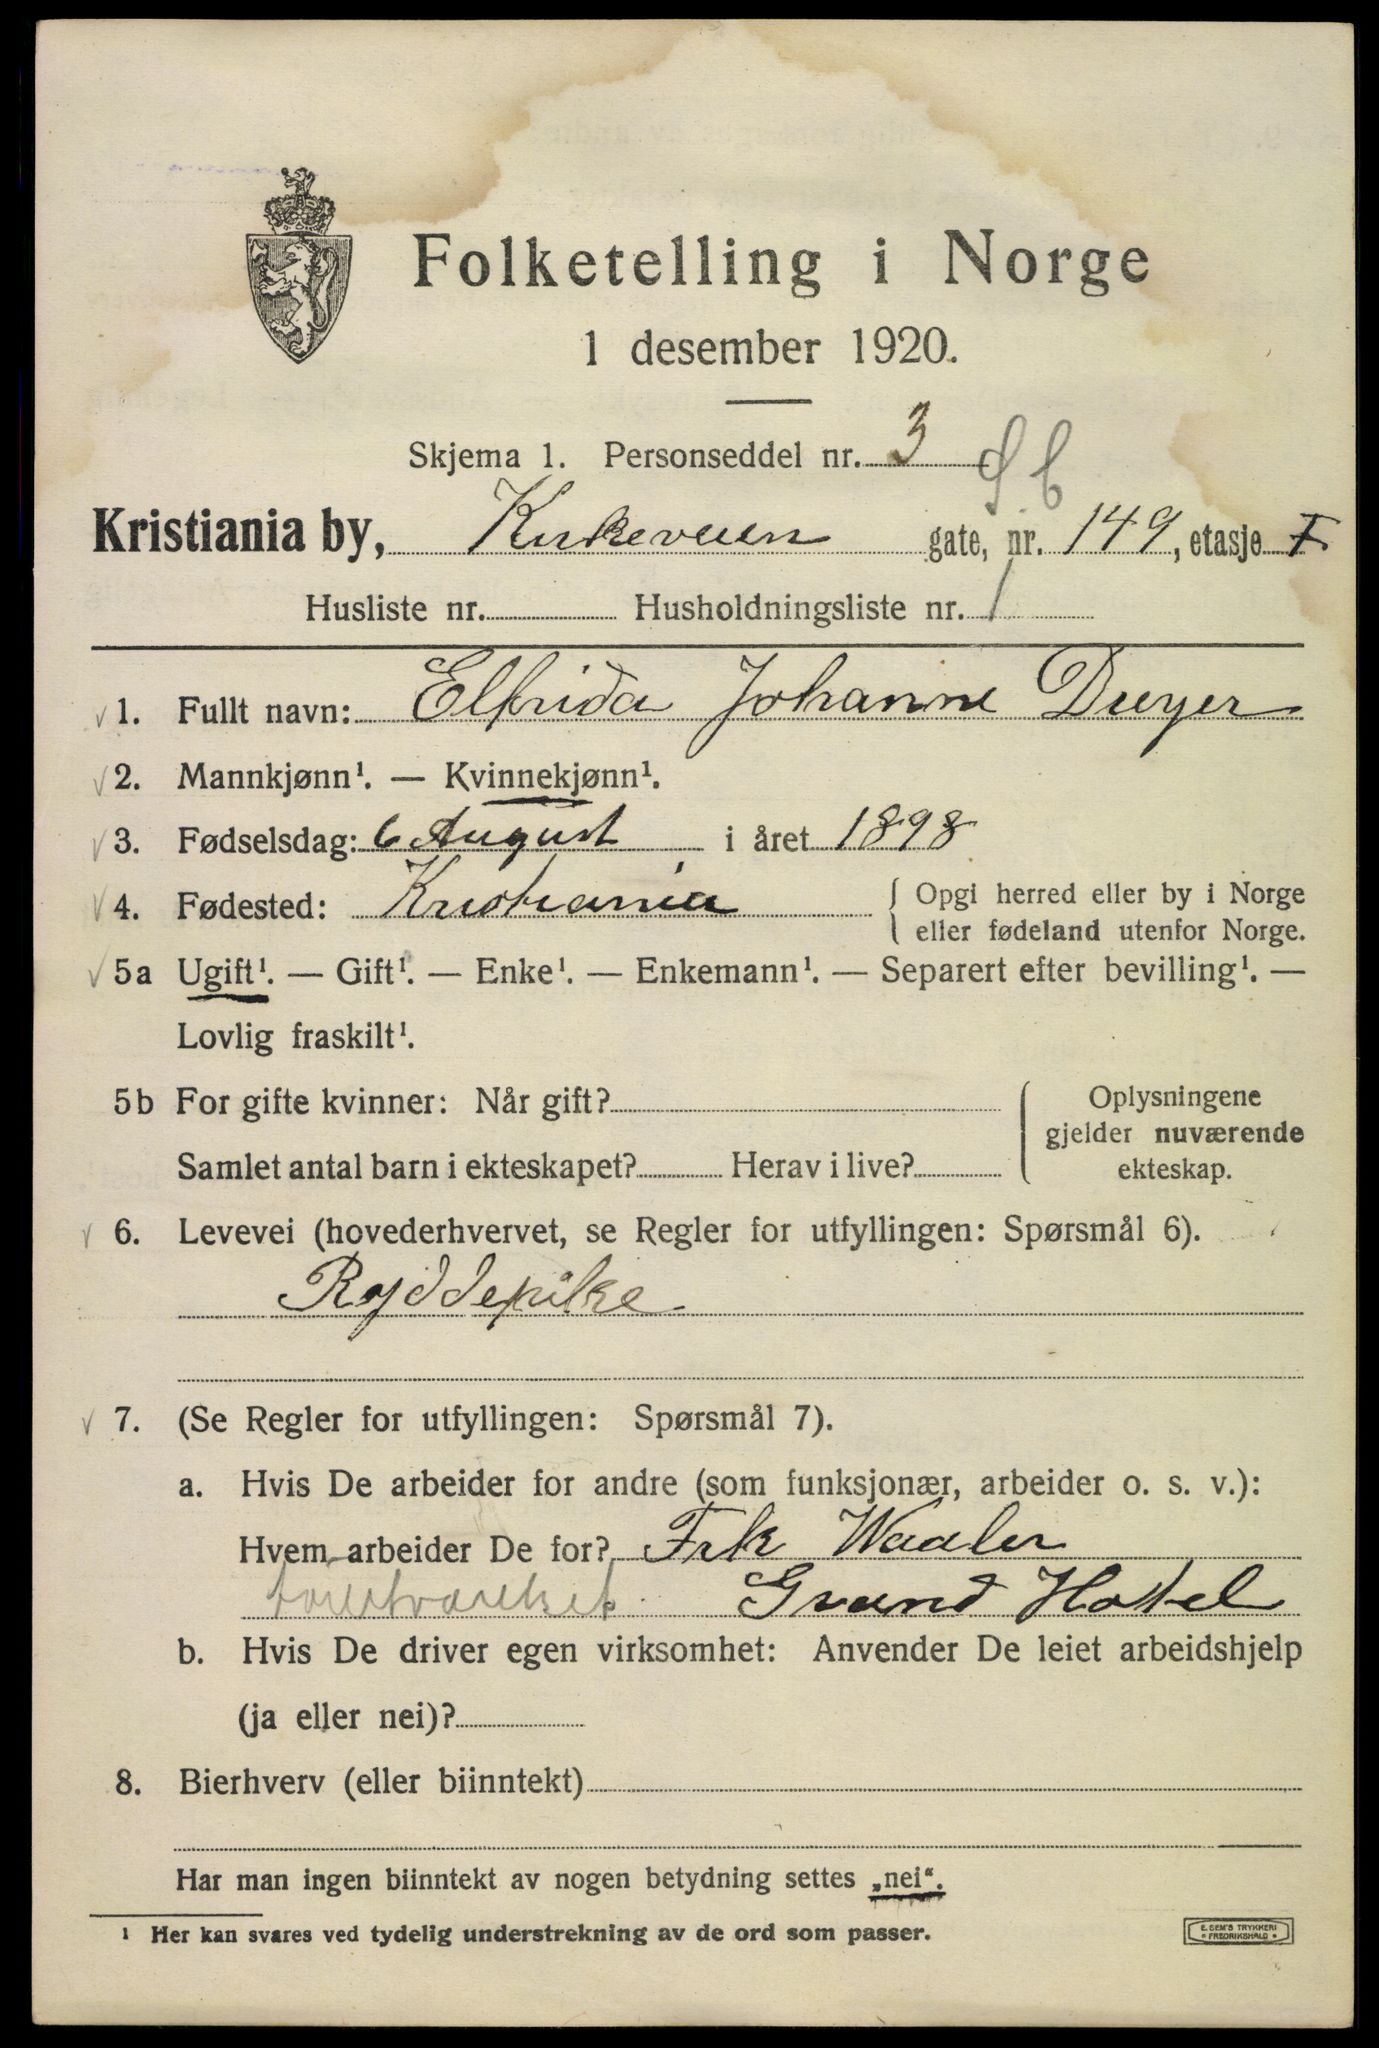 Folketelling i Norge
1 desember 1920.
Skjema 1. Personseddel nr. 3
Kristiania by, Kirkeveien gate, nr. 149, etasje I
Husliste nr. Husholdningsliste nr. 1
1. Fullt navn: Elfrida Johanne Dreyer
2. Mannkjønn¹. — Kvinnekjønn¹.
3. Fødselsdag: 6 August i året 1898
4. Fødested: Kristiania { Opgi herred eller by i Norge
eller fødeland utenfor Norge.
5a Ugift¹. — Gift¹. — Enke¹. — Enkemann¹. — Separert efter bevilling¹. —
Lovlig fraskilt¹.
5b For gifte kvinner: Når gift? { Oplysningene
gjelder nuværende
Samlet antal barn i ekteskapet? Herav i live? ekteskap.
6. Levevei (hovederhvervet, se Regler for utfyllingen: Spørsmål 6).
Ryddepike
7. (Se Regler for utfyllingen: Spørsmål 7).
a. Hvis De arbeider for andre (som funksjonær, arbeider o. s. v.):
Hvem arbeider De for? Frk Waaler
Grand Hotel
b. Hvis De driver egen virksomhet: Anvender De leiet arbeidshjelp
(ja eller nei)?
8. Bierhverv (eller biinntekt)
Har man ingen biinntekt av nogen betydning settes „nei“.
¹ Her kan svares ved tydelig understrekning av de ord som passer.
E. SEM'S TRYKKERI
FREDRIKSHALD